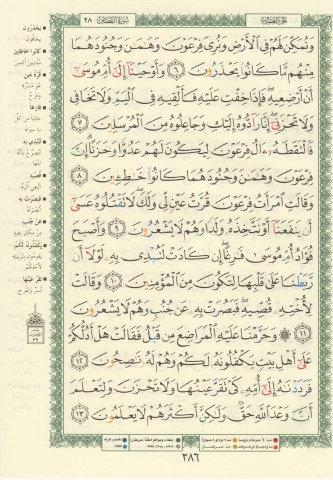 الجزء العشرون
سورة القصص
٢٨
وَنُمَكِّنَ لَهُمْ فِي ٱلْأَرْضِ وَنُرِيَ فِرْعَوْنَ وَهَٰمَٰنَ وَجُنُودَهُمَا
مِنْهُم مَّا كَانُوا۟ يَحْذَرُونَ ٦ وَأَوْحَيْنَآ إِلَىٰٓ أُمِّ مُوسَىٰٓ
أَنْ أَرْضِعِيهِ فَإِذَا خِفْتِ عَلَيْهِ فَأَلْقِيهِ فِي ٱلْيَمِّ وَلَا تَخَافِي
وَلَا تَحْزَنِيٓ إِنَّا رَآدُّوهُ إِلَيْكِ وَجَاعِلُوهُ مِنَ ٱلْمُرْسَلِينَ ٧
فَٱلْتَقَطَهُۥٓ ءَالُ فِرْعَوْنَ لِيَكُونَ لَهُمْ عَدُوًّا وَحَزَنًا إِنَّ
فِرْعَوْنَ وَهَٰمَٰنَ وَجُنُودَهُمَا كَانُوا۟ خَٰطِـِٔينَ ٨
وَقَالَتِ ٱمْرَأَتُ فِرْعَوْنَ قُرَّتُ عَيْنٍ لِّي وَلَكَ لَا تَقْتُلُوهُ عَسَىٰٓ
أَن يَنفَعَنَآ أَوْ نَتَّخِذَهُۥ وَلَدًا وَهُمْ لَا يَشْعُرُونَ ٩ وَأَصْبَحَ
فُؤَادُ أُمِّ مُوسَىٰ فَٰرِغًا إِن كَادَتْ لَتُبْدِي بِهِۦ لَوْلَآ أَن
رَّبَطْنَا عَلَىٰ قَلْبِهَا لِتَكُونَ مِنَ ٱلْمُؤْمِنِينَ ١٠ وَقَالَتْ
لِأُخْتِهِۦ قُصِّيهِ فَبَصُرَتْ بِهِۦ عَن جُنُبٍ وَهُمْ لَا يَشْعُرُونَ
١١ وَحَرَّمْنَا عَلَيْهِ ٱلْمَرَاضِعَ مِن قَبْلُ فَقَالَتْ هَلْ أَدُلُّكُمْ
عَلَىٰٓ أَهْلِ بَيْتٍ يَكْفُلُونَهُۥ لَكُمْ وَهُمْ لَهُۥ نَٰصِحُونَ ١٢
فَرَدَدْنَٰهُ إِلَىٰٓ أُمِّهِۦ كَيْ تَقَرَّ عَيْنُهَا وَلَا تَحْزَنَ وَلِتَعْلَمَ
أَنَّ وَعْدَ ٱللَّهِ حَقٌّ وَلَٰكِنَّ أَكْثَرَهُمْ لَا يَعْلَمُونَ ١٣
٣٨٦
يَحْذَرُونَ
كَانُوا خَاطِئِينَ
قُرَّةُ عَيْنٍ
فَارِغًا
لَتُبْدِي بِهِ
قُصِّيهِ
فَبَصُرَتْ بِهِ
عَنْ جُنُبٍ
يَكْفُلُونَهُ لَكُمْ
تَقَرَّ عَيْنُهَا